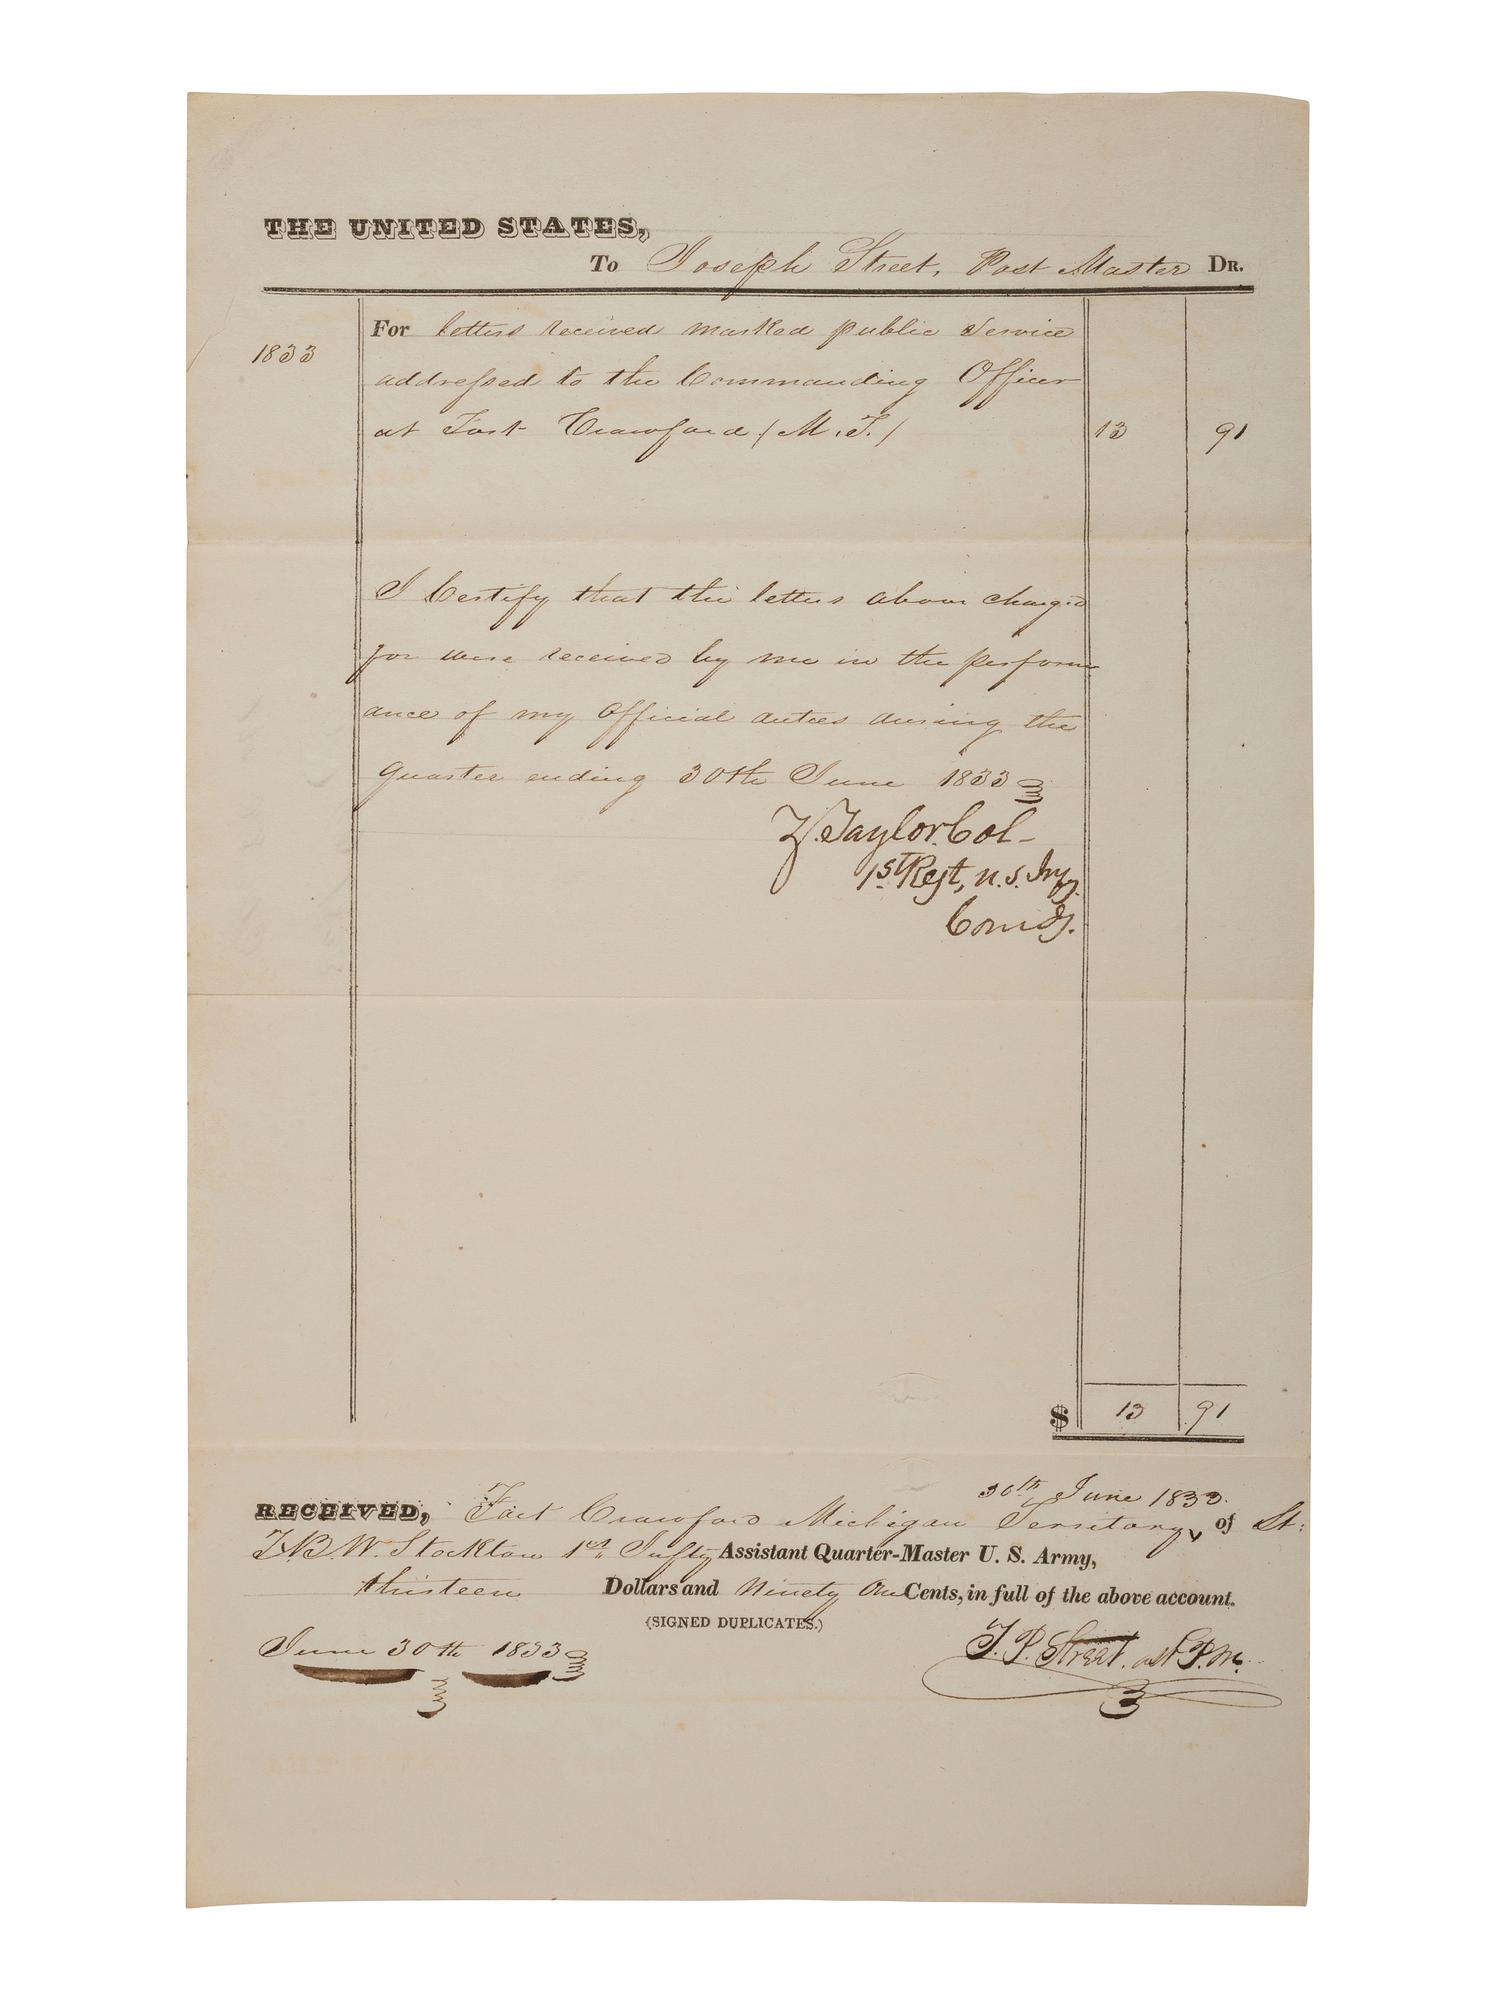 THE UNITED STATES,
To Joseph Street, Post Master DR.
For letters received marked public Service
1833
addressed to the Commanding Officer
at Fort Crawford (M.T.) 13 91
I Certify that the letters above charged
for were received by me in the perform
ance of my Official duties during the
Quarter ending 30th June 1833
Z. Taylor. Col-
1st Regt, U.S. Infy.
Comdg.
$ 13 91
30th June 1833.
RECEIVED, Fort Crawford Michigan Territory, of Lt:
T.B.W. Stockton 1st Infty Assistant Quarter-Master U. S. Army,
thirteen Dollars and Ninety One Cents, in full of the above account.
(SIGNED DUPLICATES.)
June 30th 1833
T. P. Street. ast P.M.